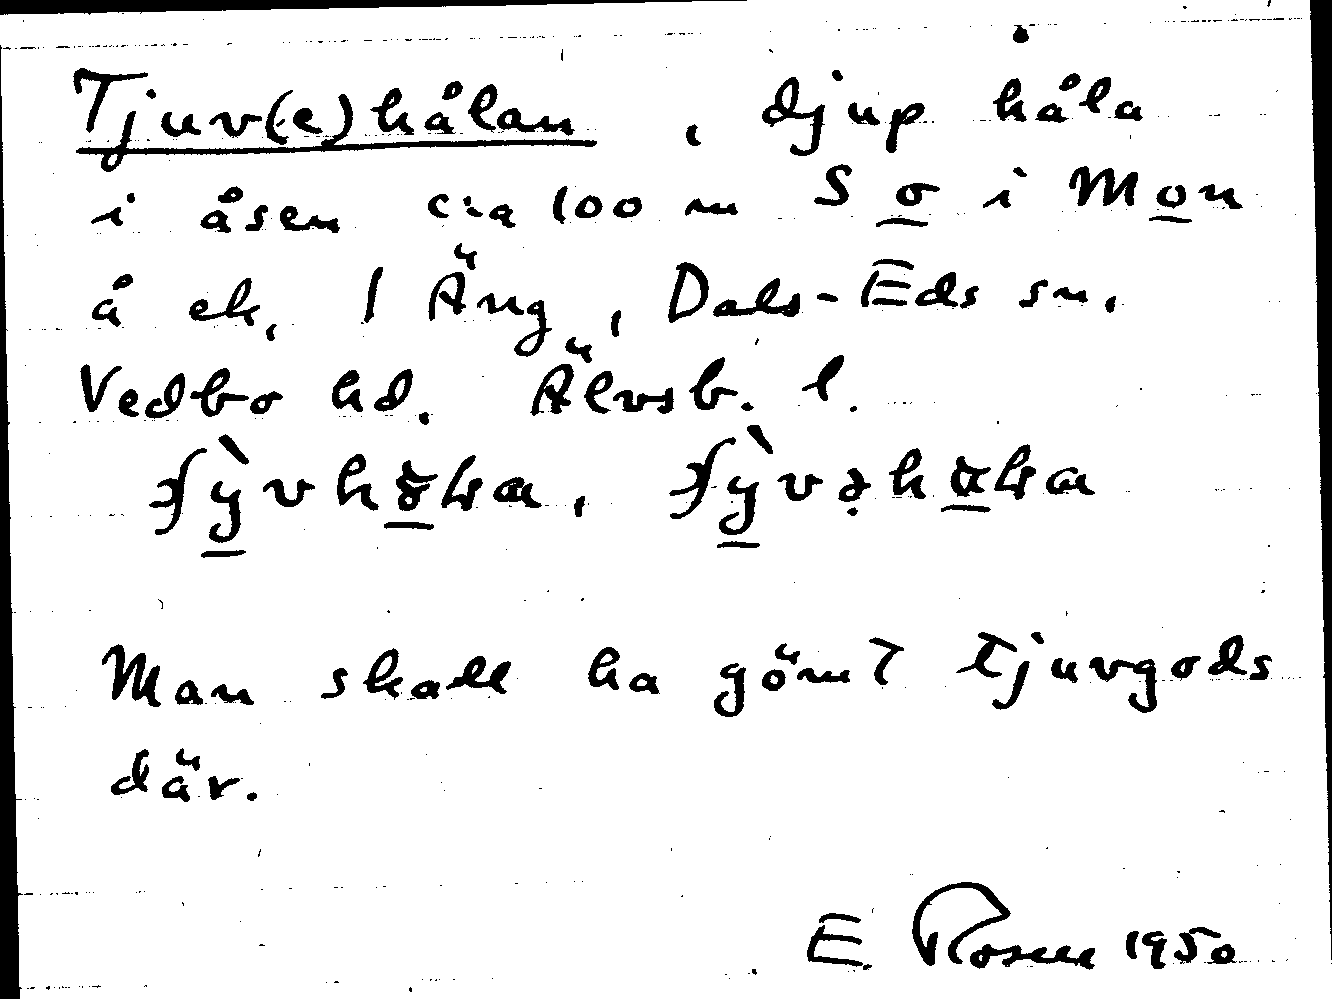 Tjuv(e)hålan, djup håla
i åsen c:a 100 m S o i Mon
å ek. 1 Äng, Dals-Eds sn.
Vedbo hd. Älvsb. l.
Man skall ha gömt tjuvgods
där.
E. Rosen 1950